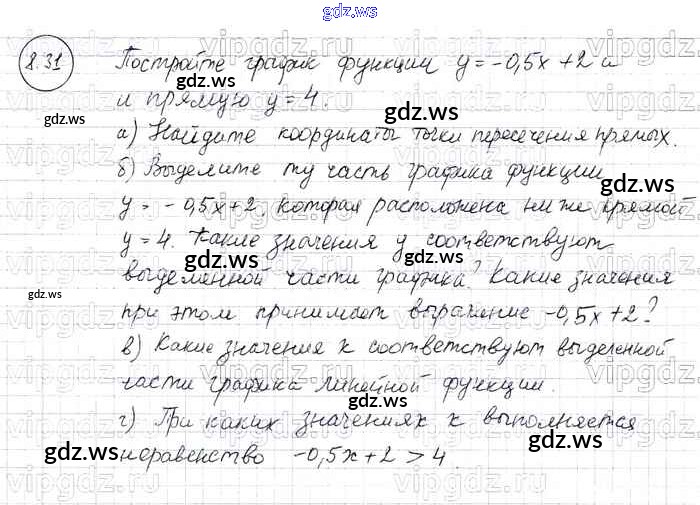 gdz.ws
8.31 Постройте график функции y = -0,5x + 2 и
gdz.ws
и прямую y = 4.
gdz.ws
gdz.ws
а) Найдите координаты точки пересечения прямых.
б) Выделите ту часть графика функции
gdz.ws
y = -0,5x + 2, которая расположена ниже прямой
y = 4. Какие значения y соответствуют
gdz.ws
выделенной части графика? Какие значения
gdz.ws
при этом принимает выражение -0,5x + 2?
gdz.ws
в) Какие значения x соответствуют выделенной
gdz.ws
части графика линейной функции.
г) При каких значениях x выполняется
gdz.ws
gdz.ws
неравенство -0,5x + 2 > 4